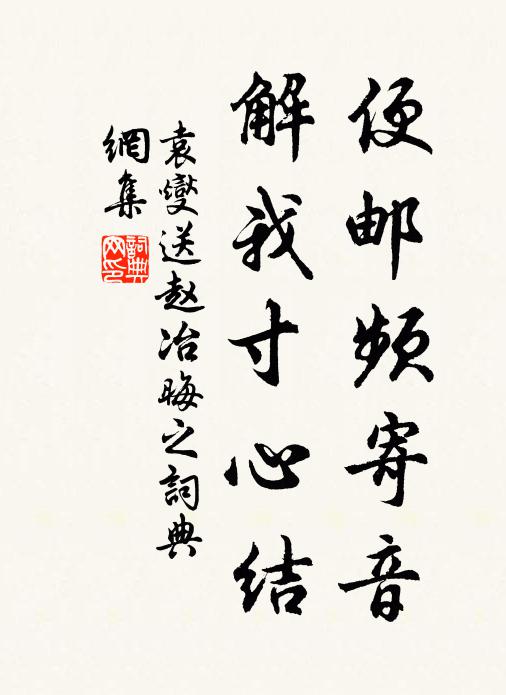 便邮频寄音
解我寸心结
袁燮送赵冶晦之詞典
網集
詞典
网印